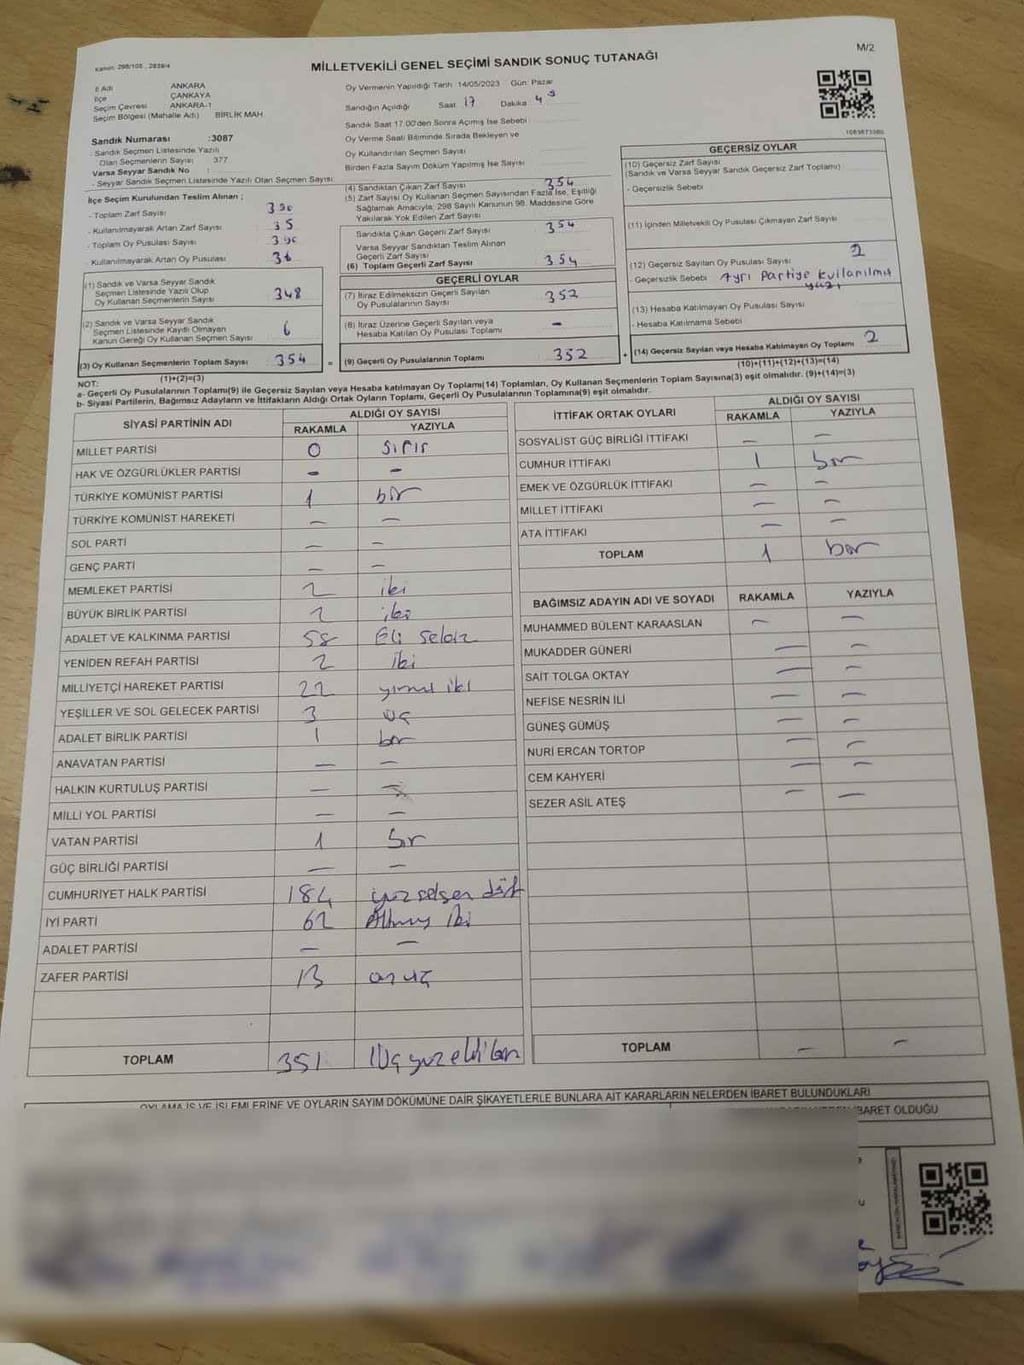 Kanun: 298/105 , 2839/4
M/2
MİLLETVEKİLİ GENEL SEÇİMİ SANDIK SONUÇ TUTANAĞI
İl Adı ANKARA
İlçe ÇANKAYA
Seçim Çevresi ANKARA-1
Seçim Bölgesi (Mahalle Adı) BİRLİK MAH.
Sandık Numarası :3087
- Sandık Seçmen Listesinde Yazılı
Olan Seçmenlerin Sayısı 377
Varsa Seyyar Sandık No :
- Seyyar Sandık Seçmen Listesinde Yazılı Olan Seçmen Sayısı
İlçe Seçim Kurulundan Teslim Alınan ;
- Toplam Zarf Sayısı 390
- Kullanılmayarak Artan Zarf Sayısı 35
- Toplam Oy Pusulası Sayısı 390
- Kullanılmayarak Artan Oy Pusulası 36
(1) Sandık ve Varsa Seyyar Sandık
Seçmen Listesinde Yazılı Olup
Oy Kullanan Seçmenlerin Sayısı 348
(2) Sandık ve Varsa Seyyar Sandık
Seçmen Listesinde Kaydı Olmayan
Kanun Gereği Oy Kullanan Seçmenlerin Sayısı 6
(3) Oy Kullanan Seçmenlerin Toplam Sayısı 354 =
(1)+(2)=(3)
Oy Vermenin Yapıldığı Tarih :14/05/2023 Gün: Pazar
Sandığın Açıldığı Saat 17 Dakika 45
Sandık Saat 17.00'den Sonra Açımış İse Sebebi
Oy Verme Saati Bitiminde Sırada Bekleyen ve
Oy Kullandırılan Seçmen Sayısı
Birden Fazla Sayım Döküm Yapılmış İse Sayısı
(4) Sandıktan Çıkan Zarf Sayısı 354
(5) Zarf Sayısı Oy Kullanan Seçmen Sayısından Fazla İse, Eşitliği
Sağlamak Amacıyla; 298 Sayılı Kanunun 98. Maddesine Göre
Yakılarak Yok Edilen Zarf Sayısı
Sandıkta Çıkan Geçerli Zarf Sayısı 354
Varsa Seyyar Sandıktan Teslim Alınan
Geçerli Zarf Sayısı
(6) Toplam Geçerli Zarf Sayısı 354
GEÇERLİ OYLAR
(7) İtiraz Edilmeksizin Geçerli Sayılan
Oy Pusulalarının Sayısı 352
(8) İtiraz Üzerine Geçerli Sayılan veya
Hesaba Katılan Oy Pusulası Toplamı -
(9) Geçerli Oy Pusulalarının Toplamı 352 +
1083673380
GEÇERSİZ OYLAR
(10) Geçersiz Zarf Sayısı
(Sandık ve Varsa Seyyar Sandık Geçersiz Zarf Toplamı)
- Geçersizlik Sebebi
(11) İçinden Milletvekili Oy Pusulası Çıkmayan Zarf Sayısı
(12) Geçersiz Sayılan Oy Pusulası Sayısı 2
- Geçersizlik Sebebi Ayrı Partiye kullanılmış
(13) Hesaba Katılmayan Oy Pusulası Sayısı
- Hesaba Katılmama Sebebi
(14) Geçersiz Sayılan veya Hesaba Katılmayan Oy Toplamı 2
(10)+(11)+(12)+(13)=(14)
NOT:
a- Geçerli Oy Pusulalarının Toplamı(9) ile Geçersiz Sayılan veya Hesaba katılmayan Oy Toplam(14) Toplamları, Oy Kullanan Seçmenlerin Toplam Sayısına(3) eşit olmalıdır. (9)+(14)=(3)
b- Siyasi Partilerin, Bağımsız Adayların ve İttifakların Aldığı Ortak Oyların Toplamı, Geçerli Oy Pusulalarının Toplamına(9) eşit olmalıdır.
SİYASİ PARTİNİN ADI ALDIĞI OY SAYISI
RAKAMLA YAZIYLA
MİLLET PARTİSİ 0 sıfır
HAK VE ÖZGÜRLÜKLER PARTİSİ - -
TÜRKİYE KOMÜNİST PARTİSİ 1 bir
TÜRKİYE KOMÜNİST HAREKETİ - -
SOL PARTİ - -
GENÇ PARTİ - -
MEMLEKET PARTİSİ 2 iki
BÜYÜK BİRLİK PARTİSİ 2 iki
ADALET VE KALKINMA PARTİSİ 58 Elli Sekiz
YENİDEN REFAH PARTİSİ 2 iki
MİLLİYETÇİ HAREKET PARTİSİ 22 yirmi iki
YEŞİLLER VE SOL GELECEK PARTİSİ 3 üç
ADALET BİRLİK PARTİSİ 1 bir
ANAVATAN PARTİSİ - -
HALKIN KURTULUŞ PARTİSİ -
MİLLİ YOL PARTİSİ - -
VATAN PARTİSİ 1 bir
GÜÇ BİRLİĞİ PARTİSİ - -
CUMHURİYET HALK PARTİSİ 184 yüz seksen dört
İYİ PARTİ 62 Altmış iki
ADALET PARTİSİ - -
ZAFER PARTİSİ 13 onüç
TOPLAM 351 Üç yüz elli bir
İTTİFAK ORTAK OYLARI ALDIĞI OY SAYISI
RAKAMLA YAZIYLA
SOSYALİST GÜÇ BİRLİĞİ İTTİFAKI - -
CUMHUR İTTİFAKI 1 bir
EMEK VE ÖZGÜRLÜK İTTİFAKI - -
MİLLET İTTİFAKI - -
ATA İTTİFAKI - -
TOPLAM 1 bir
BAĞIMSIZ ADAYIN ADI VE SOYADI RAKAMLA YAZIYLA
MUHAMMED BÜLENT KARAASLAN - -
MUKADDER GÜNERİ - -
SAİT TOLGA OKTAY - -
NEFİSE NESRİN İLİ - -
GÜNEŞ GÜMÜŞ - -
NURİ ERCAN TORTOP - -
CEM KAHYERİ - -
SEZER ASİL ATEŞ - -
TOPLAM - -
OYLAMA İŞ VE İŞLEMLERİNE VE OYLARIN SAYIM DÖKÜMÜNE DAİR ŞİKAYETLERLE BUNLARA AİT KARARLARIN NELERDEN İBARET BULUNDUKLARI
İBARET OLDUĞU